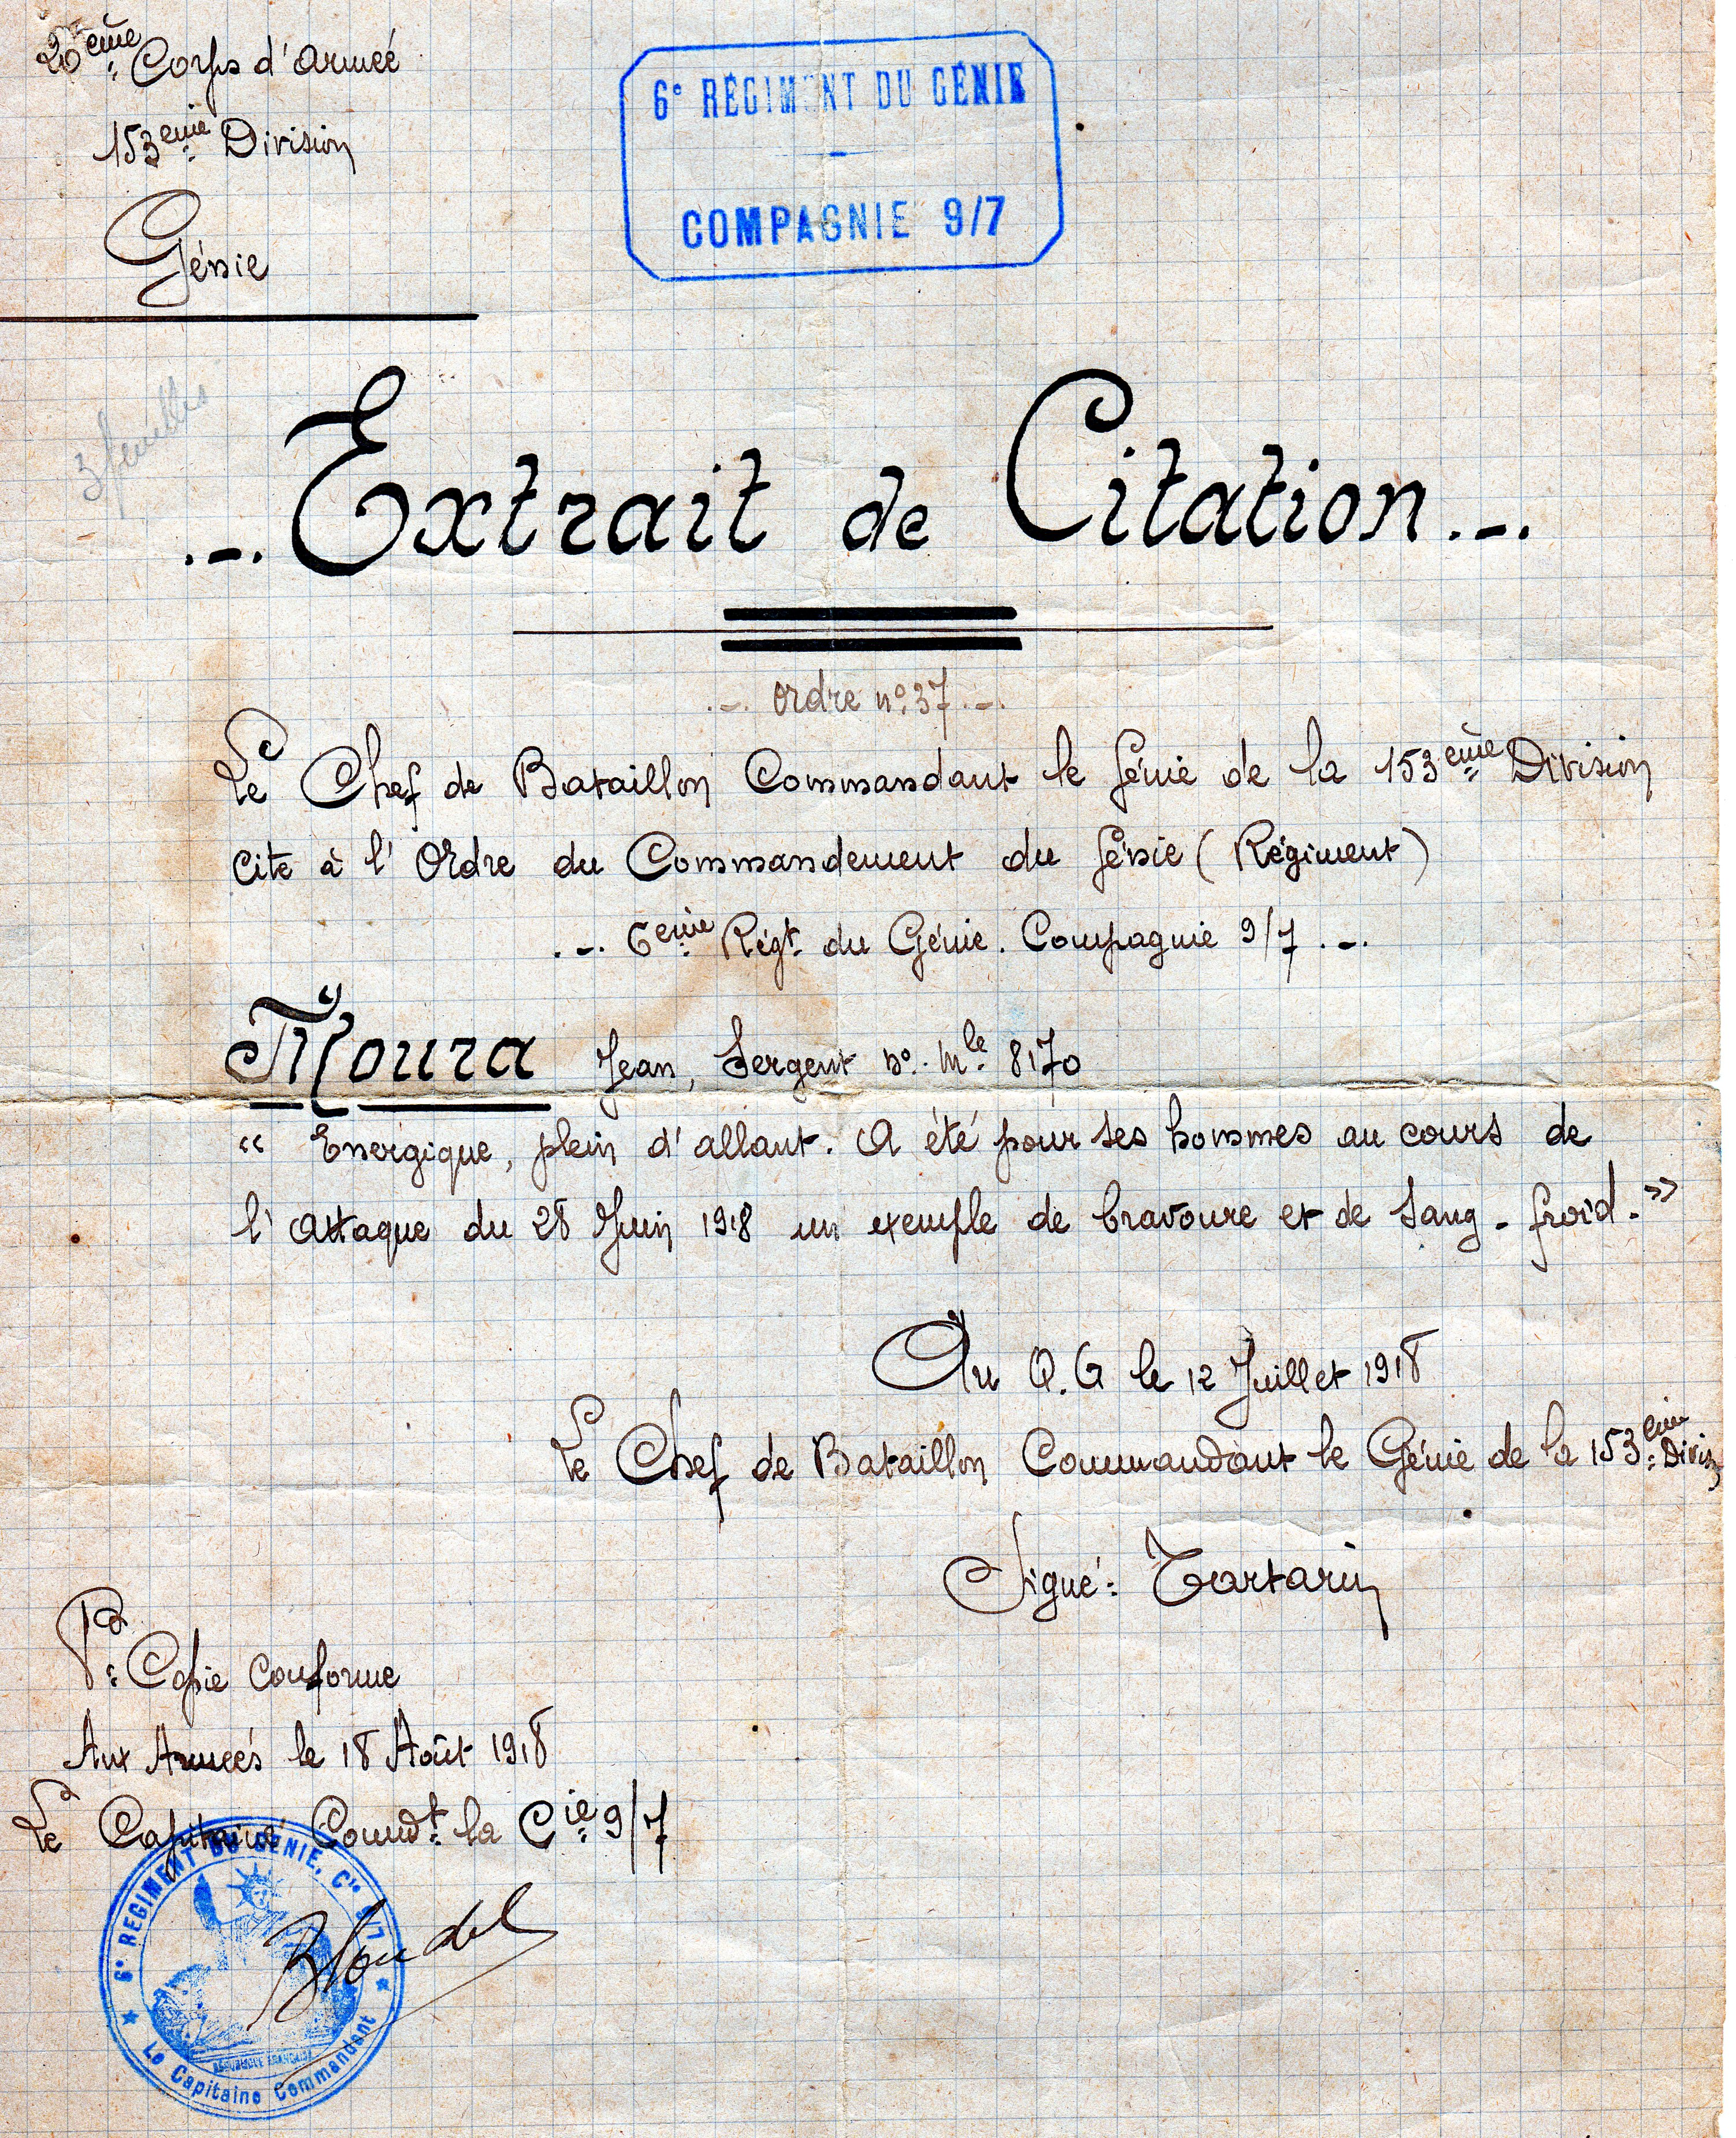 20ème Corps d'armée
153ème Division
Génie
6e RÉGIMENT DU GÉNIE
-
COMPAGNIE 9/7
3 feuilles
.-. Extrait de Citation .-.
.-. Ordre no. 37 .-.
Le Chef de Bataillon Commandant le Génie de la 153ème Division
cite à l'Ordre du Commandement du Génie (Régiment)
.-. 6ème Régt. du Génie. Compagnie 9/7 .-.
Moura Jean, Sergent No. Mle. 8170
"Energique, plein d'allant. A été pour ses hommes au cours de
l'attaque du 28 Juin 1918 un exemple de bravoure et de sang-froid."
Au Q.G le 12 Juillet 1918
Le Chef de Bataillon Commandant le Génie de la 153ème Divis
Signé: Tartarin
Pr. Copie conforme
Aux Armées le 18 Août 1918
Le Capitaine Commdt. la Cie. 9/7
6e REGIMENT DU GENIE, Cie 9/7
Blondel
RÉPUBLIQUE FRANÇAISE
Le Capitaine Commandant